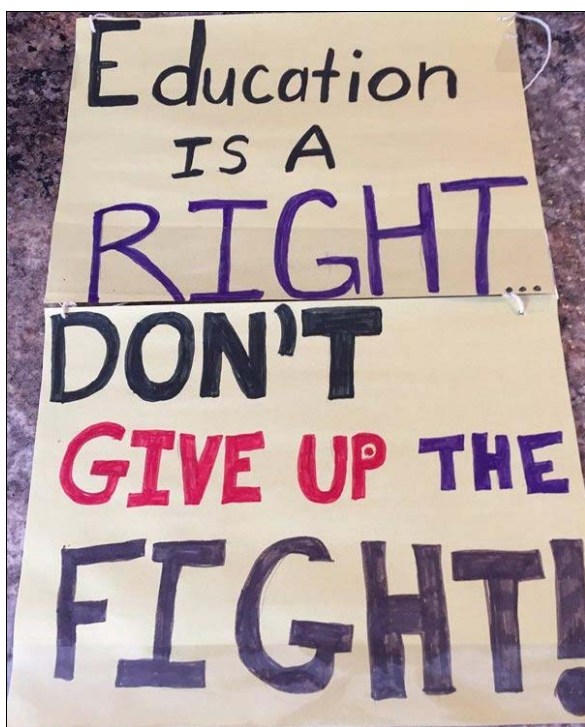 Education
IS A
RIGHT...
DON'T
GIVE UP THE
FIGHT!